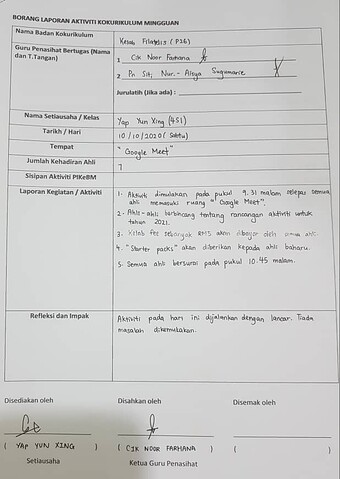 BORANG LAPORAN AKTIVITI KOKURIKULUM MINGGUAN
Nama Badan Kokurikulum
Kelab Filatelis (P26)
Guru Penasihat Bertugas (Nama
dan T.Tangan)
1 Cik Noor Farhana
2 Pn Siti Nur-Aisya
Jurulatih (Jika ada) :
Nama Setiausaha / Kelas
Yap Yun Xing (4S1)
Tarikh / Hari
10/10/2020 (Sabtu)
Tempat
"Google Meet"
Jumlah Kehadiran Ahli
7
Sisipan Aktiviti PIKeBM
Laporan Kegiatan / Aktiviti
1. Aktiviti dimulakan pada pukul 9.31 malam selepas semua
ahli memasuki ruang "Google Meet".
2. Ahli-ahli berbincang tentang rancangan aktiviti untuk
tahun 2021.
3. sebanyak akan dibayar oleh semua ahli.
4. "Starter packs" akan diberikan kepada ahli baharu.
5. Semua ahli bersurai pada pukul 10.45 malam.
Refleksi dan Impak
Aktiviti pada hari ini dijalankan dengan lancar. Tiada
masalah dikemukakan.
Disediakan oleh
Disahkan oleh
Disemak oleh
( YAP YUN XING )
( CIK NOOR FARHANA )
( )
Setiausaha
Ketua Guru Penasihat